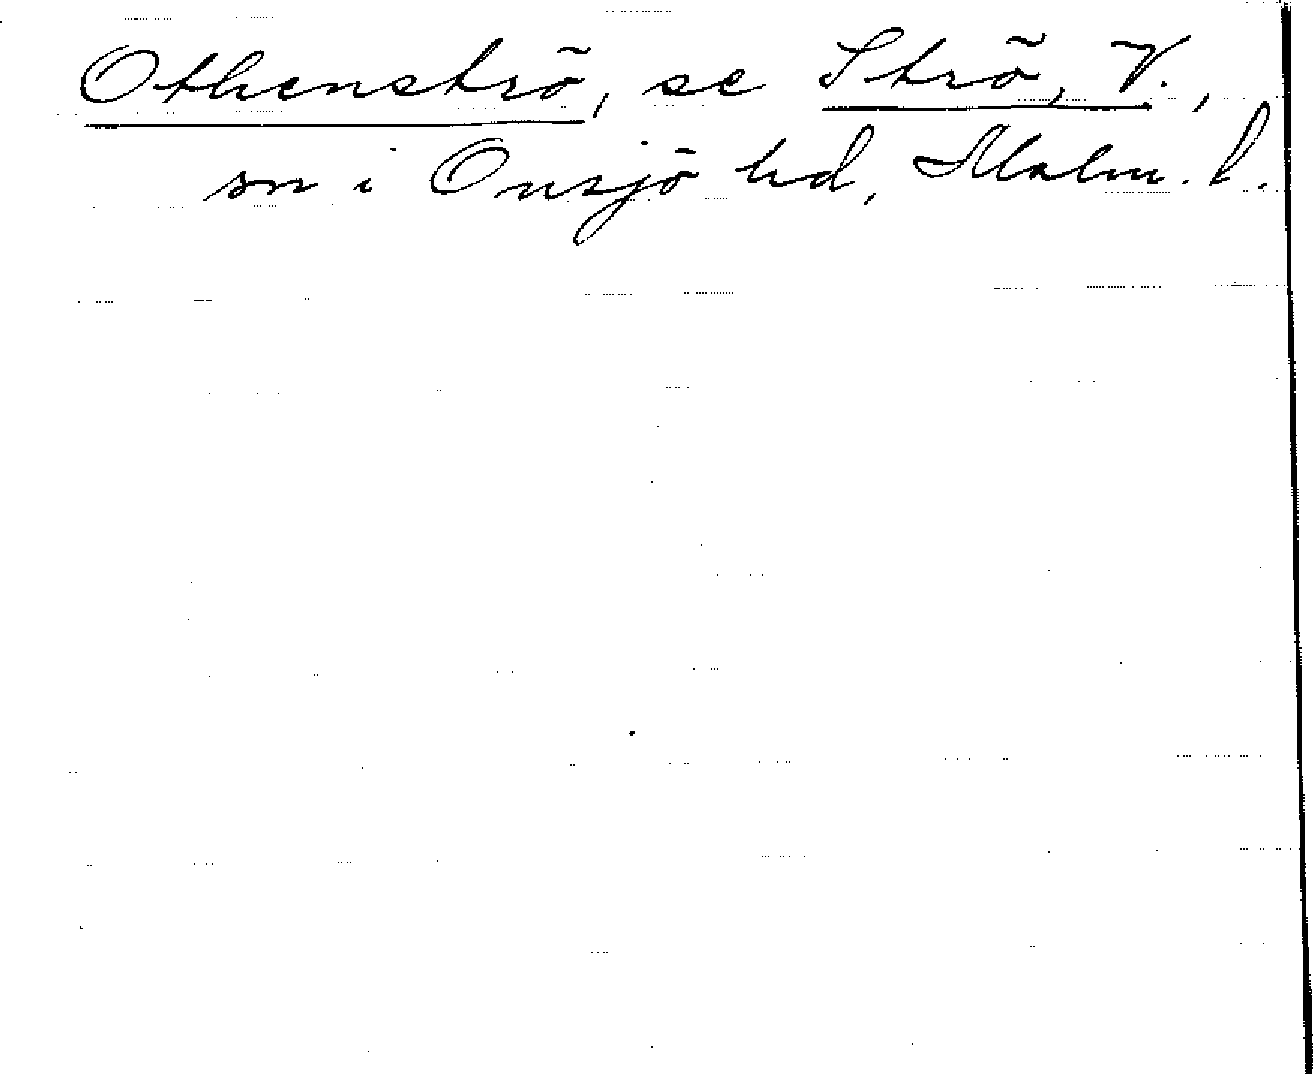 Othenströ, se Strö, V.,
sn i Onsjö hd, Malm. l.